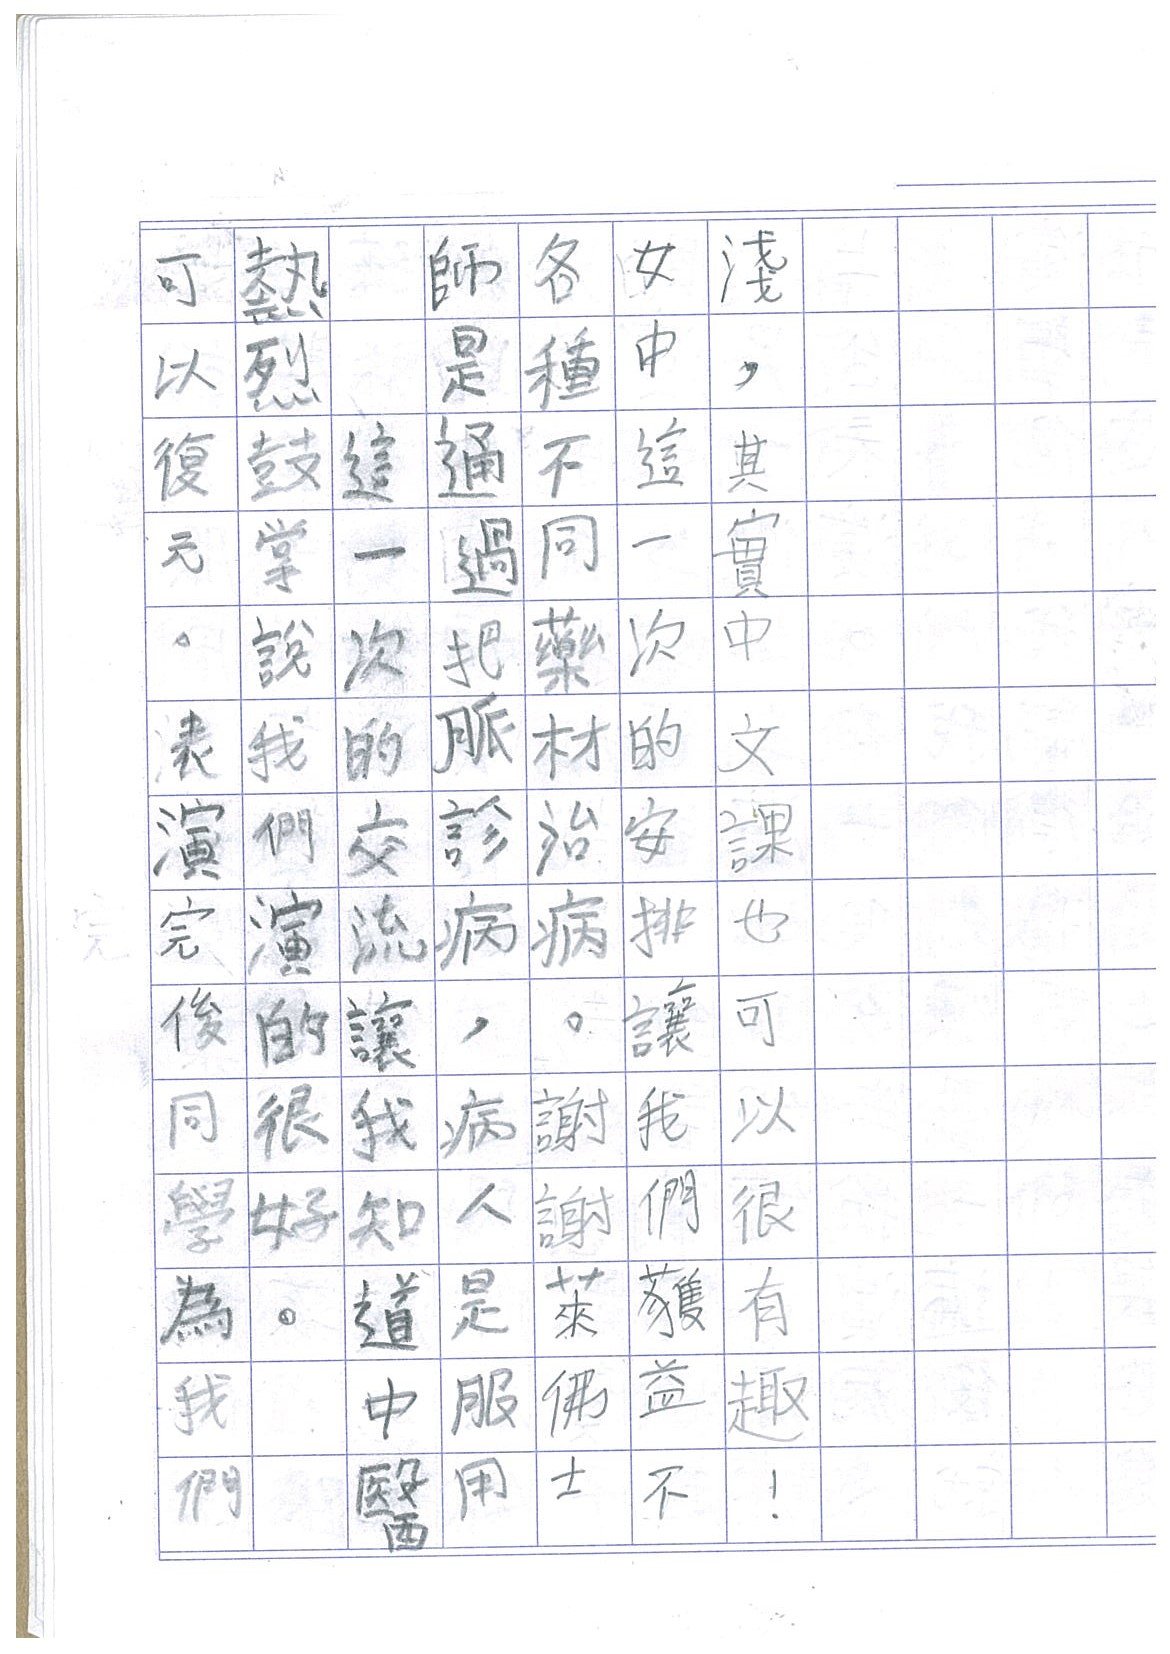 可以復元。表演完後同學為我們
熱烈鼓掌說我們演的很好。
這一次的交流讓我知道中醫
師是通過把脈診病，病人是服用
各種不同藥材治病。謝謝萊佛士
女中這一次的安排讓我們獲益不
淺，其實中文課也可以很有趣！